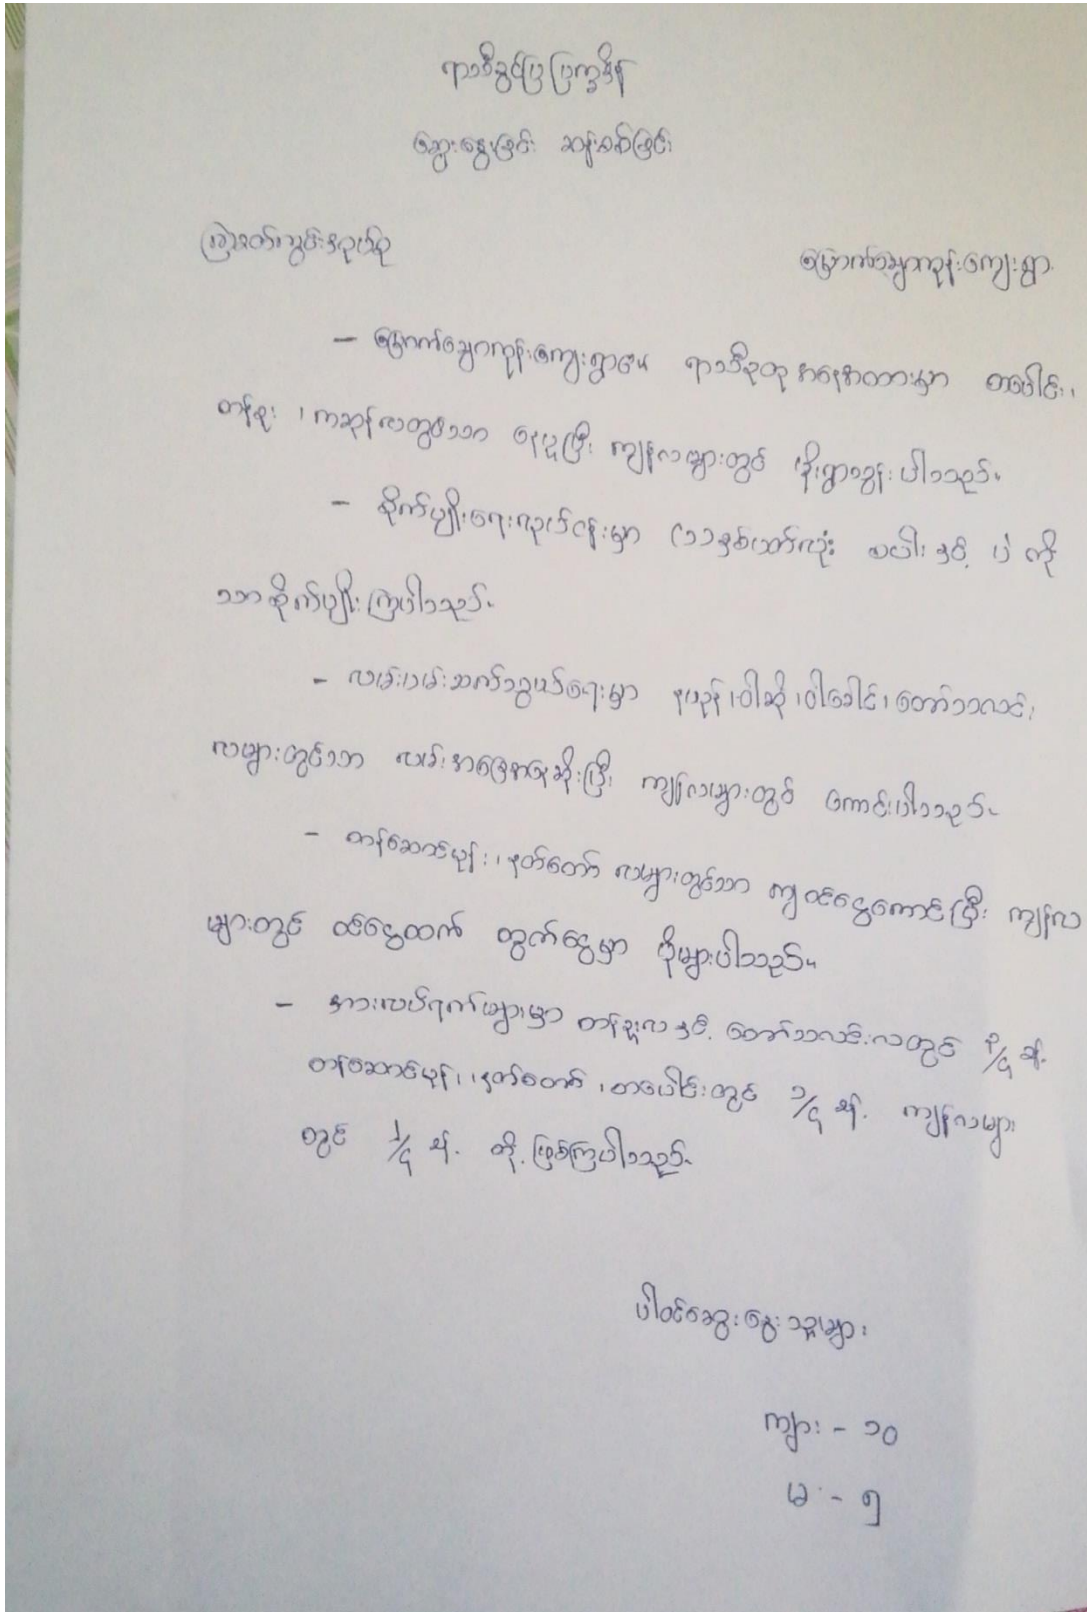 ရာသီခွင်ပြ ပြက္ခဒိန်
ဆွေးနွေးခြင်း ဆန်းစစ်ခြင်း
မြောက်သျှောကုန်းကျေးရွာ
- မြောက်သျှောကုန်းကျေးရွာ၏ ရာသီဥတု အနေအထားမှာ တပေါင်း၊
တန်ခူး ၊ ကဆုန်လတွင်သာ နေပူပြီး ကျန်လများတွင် မိုးရွာသွန်းပါသည်။
- စိုက်ပျိုးရေးလုပ်ငန်းမှာ (၁၁နှစ်ပတ်လုံး စပါး နှင့် ပဲ ကို
သာ စိုက်ပျိုးကြပါသည်။
- လမ်းပမ်းဆက်သွယ်ရေးမှာ နယုန်၊ ဝါဆို ၊ ဝါခေါင်၊ တော်သလင်း
လများတွင်သာ လမ်းအခြေအနေဆိုးပြီး ကျန်လများတွင် ကောင်းပါသည်။
- တန်ဆောင်မုန်း ၊ နတ်တော် လများတွင်သာ ဝင်ငွေကောင်းပြီး ကျန်လ
များတွင် ဝင်ငွေထက် ထွက်ငွေမှာ ပိုများပါသည်။
- အားလပ်ရက်များမှာ တန်ခူးလ နှင့် တော်သလင်းလတွင် ၃/၄ ခန့်
တန်ဆောင်မုန်း ၊ နတ်တော် ၊ တပေါင်းတွင် ၁/၄ ခန့် ကျန်လများ
တွင် ၁/၄ ခန့် တို့ ဖြစ်ကြပါသည်။
ပါဝင်ဆွေးနွေးသူများ
ကျား - ၁၀
မ - ၅